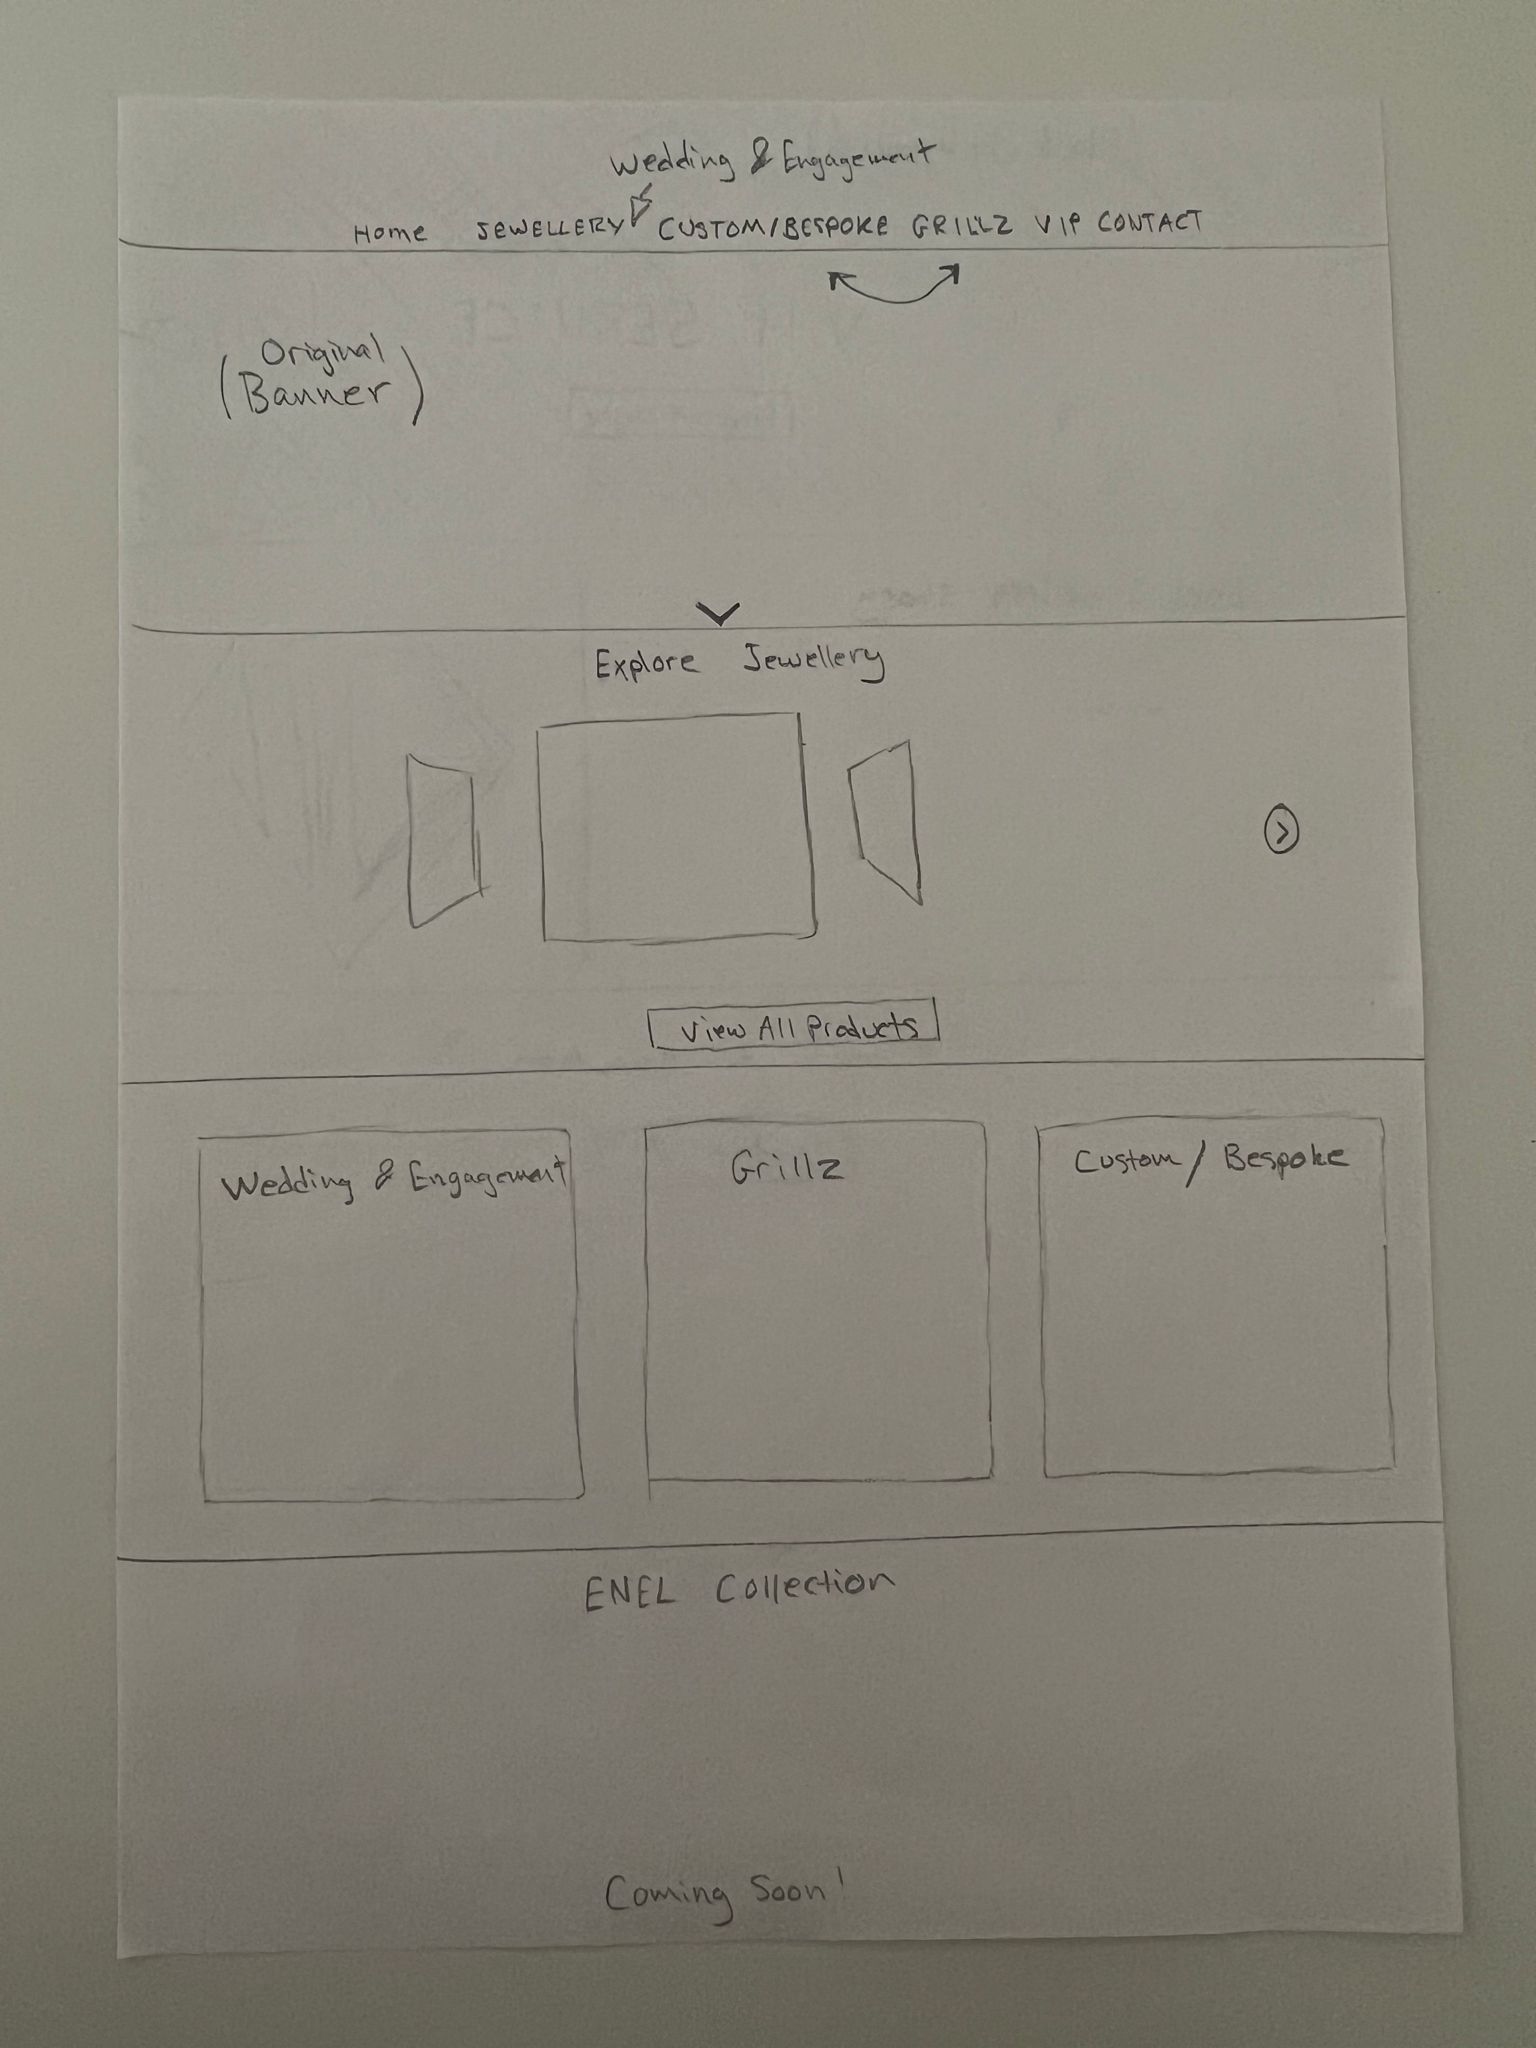 Wedding & Engagement
Home JEWELLERY CUSTOM/BESPOKE GRILLZ VIP CONTACT
(Original
Banner)
Explore Jewellery
View All Products
Wedding & Engagement
Grillz
Custom/Bespoke
ENEL Collection
Coming Soon!